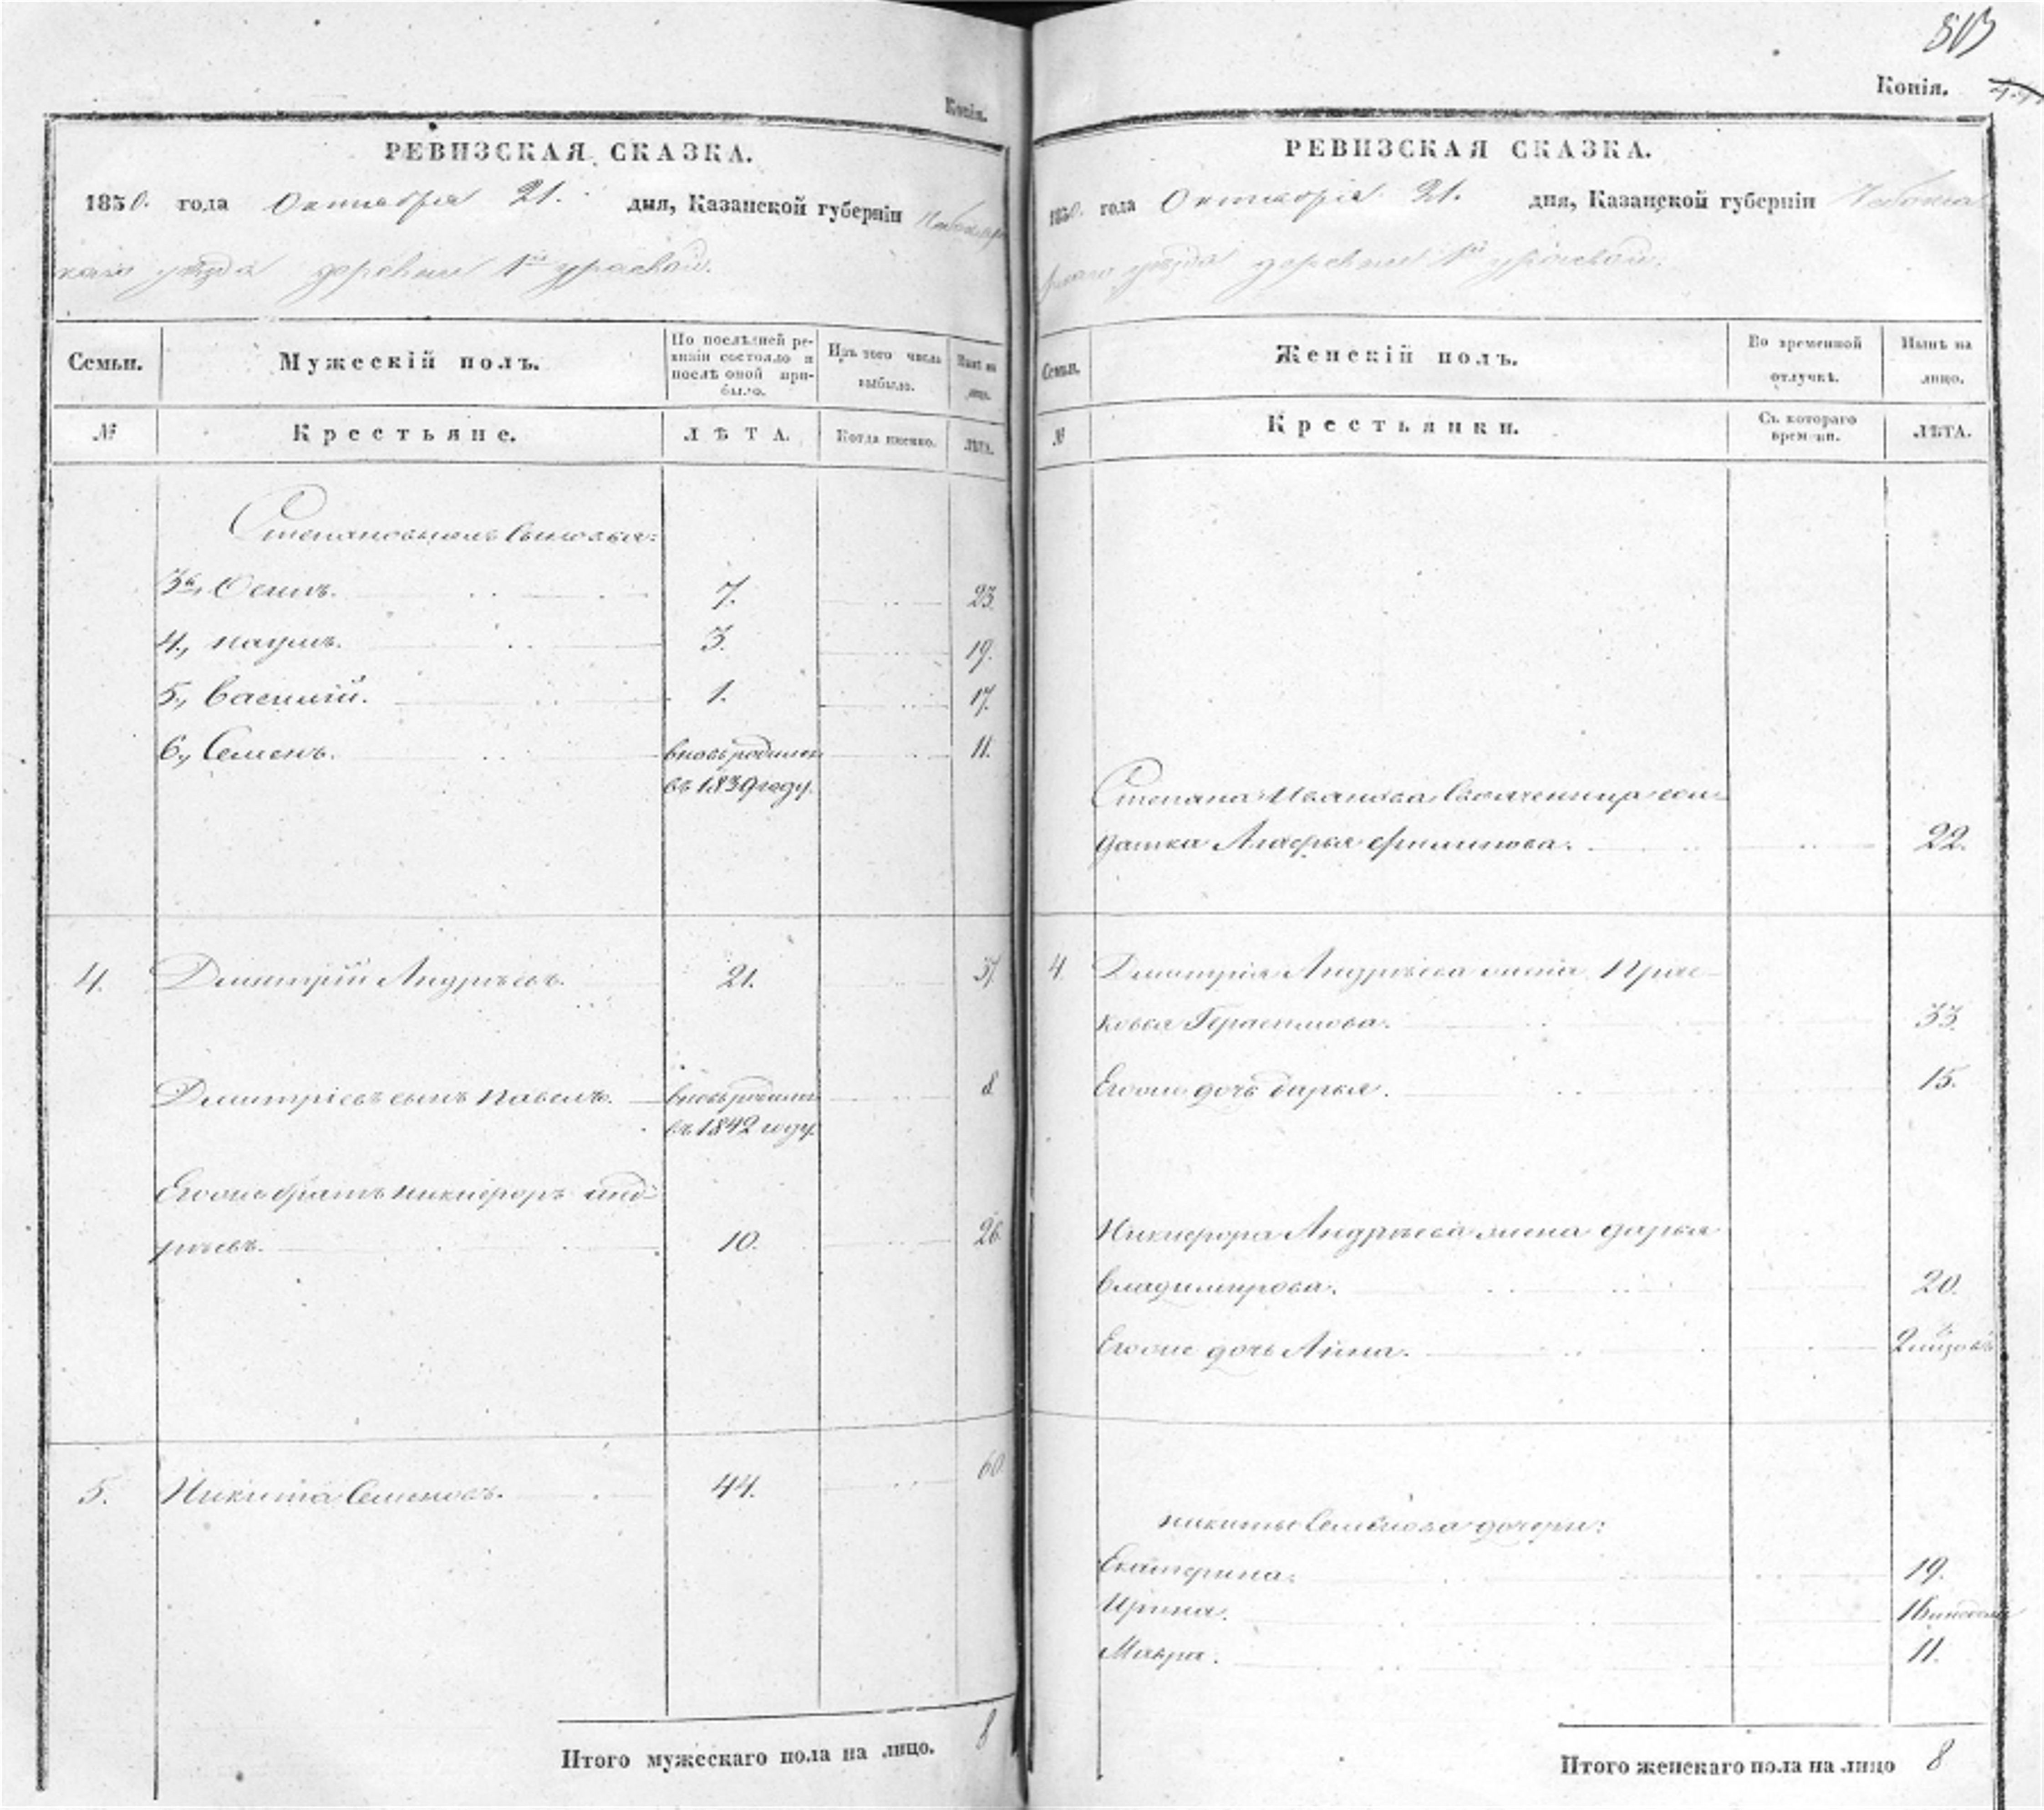 Копія.
РЕВИЗСКАЯ СКАЗКА.
1850. года Октября 21. дня, Казанской губерніи Чебоксар
скаго уѣзда деревни 1й
Семьи. Мужескій полъ. По послѣдней ре-
визіи состояло и
послѣ оной при-
было. Изъ того числа
выбыло. Нынѣ на
лицо.
№ Крестьяне. ЛѢТА. Когда именно. ЛѢТА.
Степановыхъ сыновья:
3й, Осипъ. 7. 23.
4., Наумъ. 3. 19.
5., Василій. 1. 17.
6., Семенъ. вновь рожденъ 11.
въ 1839 году.
4. Димитрій Андрѣевъ. 21. 37.
Димитріевъ сынъ Павелъ. вновь рожденъ 8
въ 1842 году.
Его же братъ Никифоръ Анд-
рѣевъ. 10. 26.
5. Никита Семеновъ. 44. 60
Итого мужескаго пола на лицо. 8
503
Копія.
РЕВИЗСКАЯ СКАЗКА.
1850. года Октября 21. дня, Казанской губерніи Чебокса
рскаго уѣзда деревни 1й
Семьи. Женскій полъ. Во временной
отлучкѣ. Нынѣ на
лицо.
№ Крестьянки. Съ котораго
времени. ЛѢТА.
Степана Иванова сол-
датка Агафья Филипова. 22.
4. Димитрія Андрѣева жена Прас-
ковья Герасимова. 33.
Его же дочь Дарья. 15.
Никифора Андрѣева жена Дарья
Владимирова. 20.
Его же дочь Анна. 2
Никиты Семенова дочери:
Екатерина. 19.
Ирина. 16
Мавра. 11.
Итого женскаго пола на лицо 8